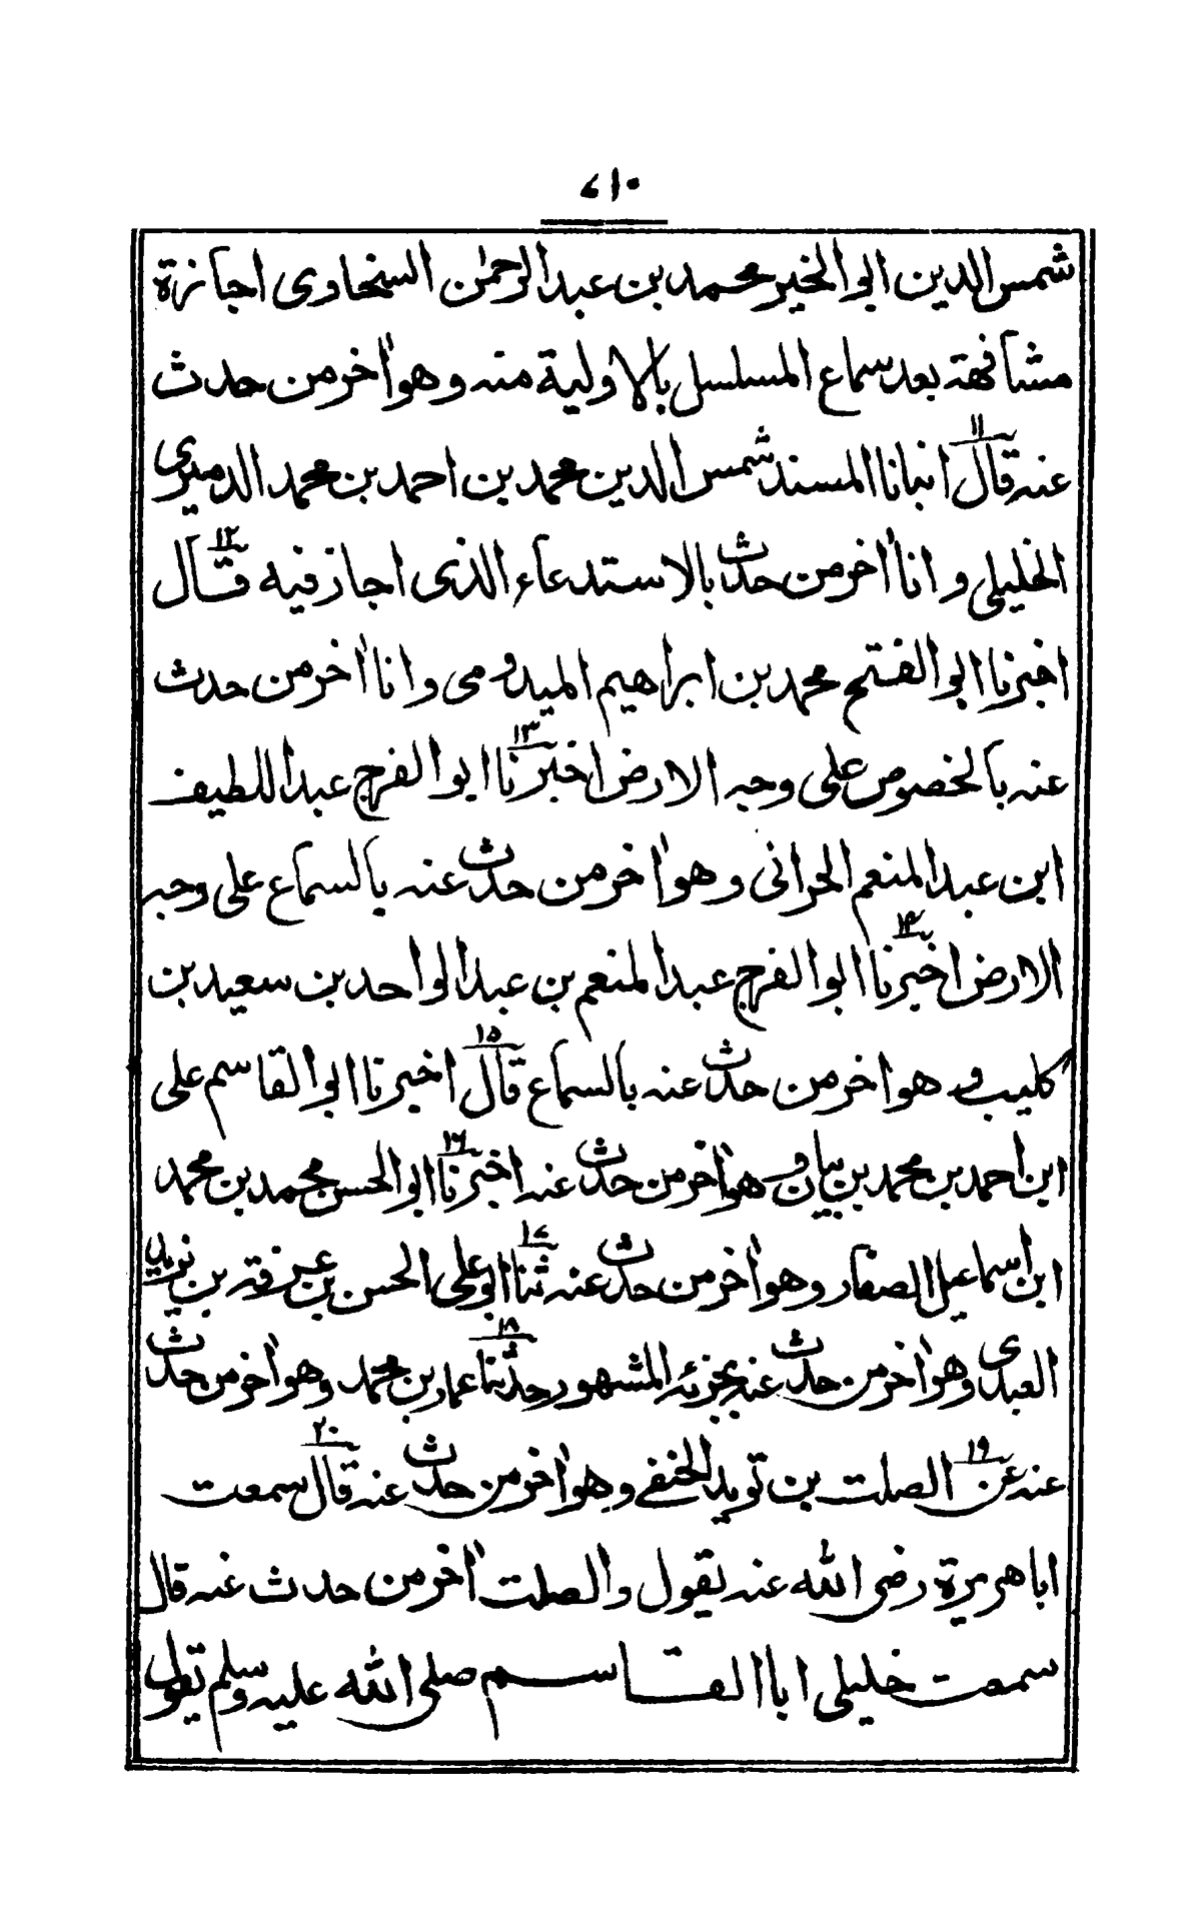 ٧١٠
شمس الدين ابو الخير محمد بن عبد الرحمٰن السخاوى اجازة
مشافهة بعد سماع المسلسل بالاولية منه وهو اٰخر من حدث
عنه قال ١١ انبانا المسند شمس الدين محمد بن احمد بن محمد الدميرى
الخليلى وانا اٰخر من حدث بالاستدعاء الذى اجاز فيه قال ١٢
اخبرنا ابو الفتح محمد بن ابراهيم الميدومى وانا اٰخر من حدث
عنه بالخصوص على وجه الارض اخبرنا ١٣ ابو الفرج عبد اللطيف
ابن عبد المنعم الحرانى وهو اٰخر من حدث عنه بالسماع على وجه
الارض اخبرنا ١٤ ابو الفرج عبد المنعم بن عبد الواحد بن سعيد بن
كليب وهو اخر من حدث عنه بالسماع قال ١٥ اخبرنا ابو القاسم على
ابن احمد بن محمد بن بيان وهو اٰخر من حدث عنه اخبرنا ١٦ ابو الحسن محمد بن محمد
ابن اسماعيل الصفار وهو اٰخر من حدث عنه ثنا ١٧ ابو على الحسن بن عرفة بن يزيد
العبدى وهو اٰخر من حدث عنه بجزئه المشهور حدثنا ١٨ عمار بن محمد وهو اٰخر من حدث
عنه عن ١٩ الصلت بن تويد الحنفے وهو اٰخر من حدث عنه قال ٢٠ سمعت
ابا هريرة رضى الله عنه يقول والصلت اٰخر من حدث عنه قال
سمعت خليلى ابا القاسم صلى الله عليه وسلم يقول